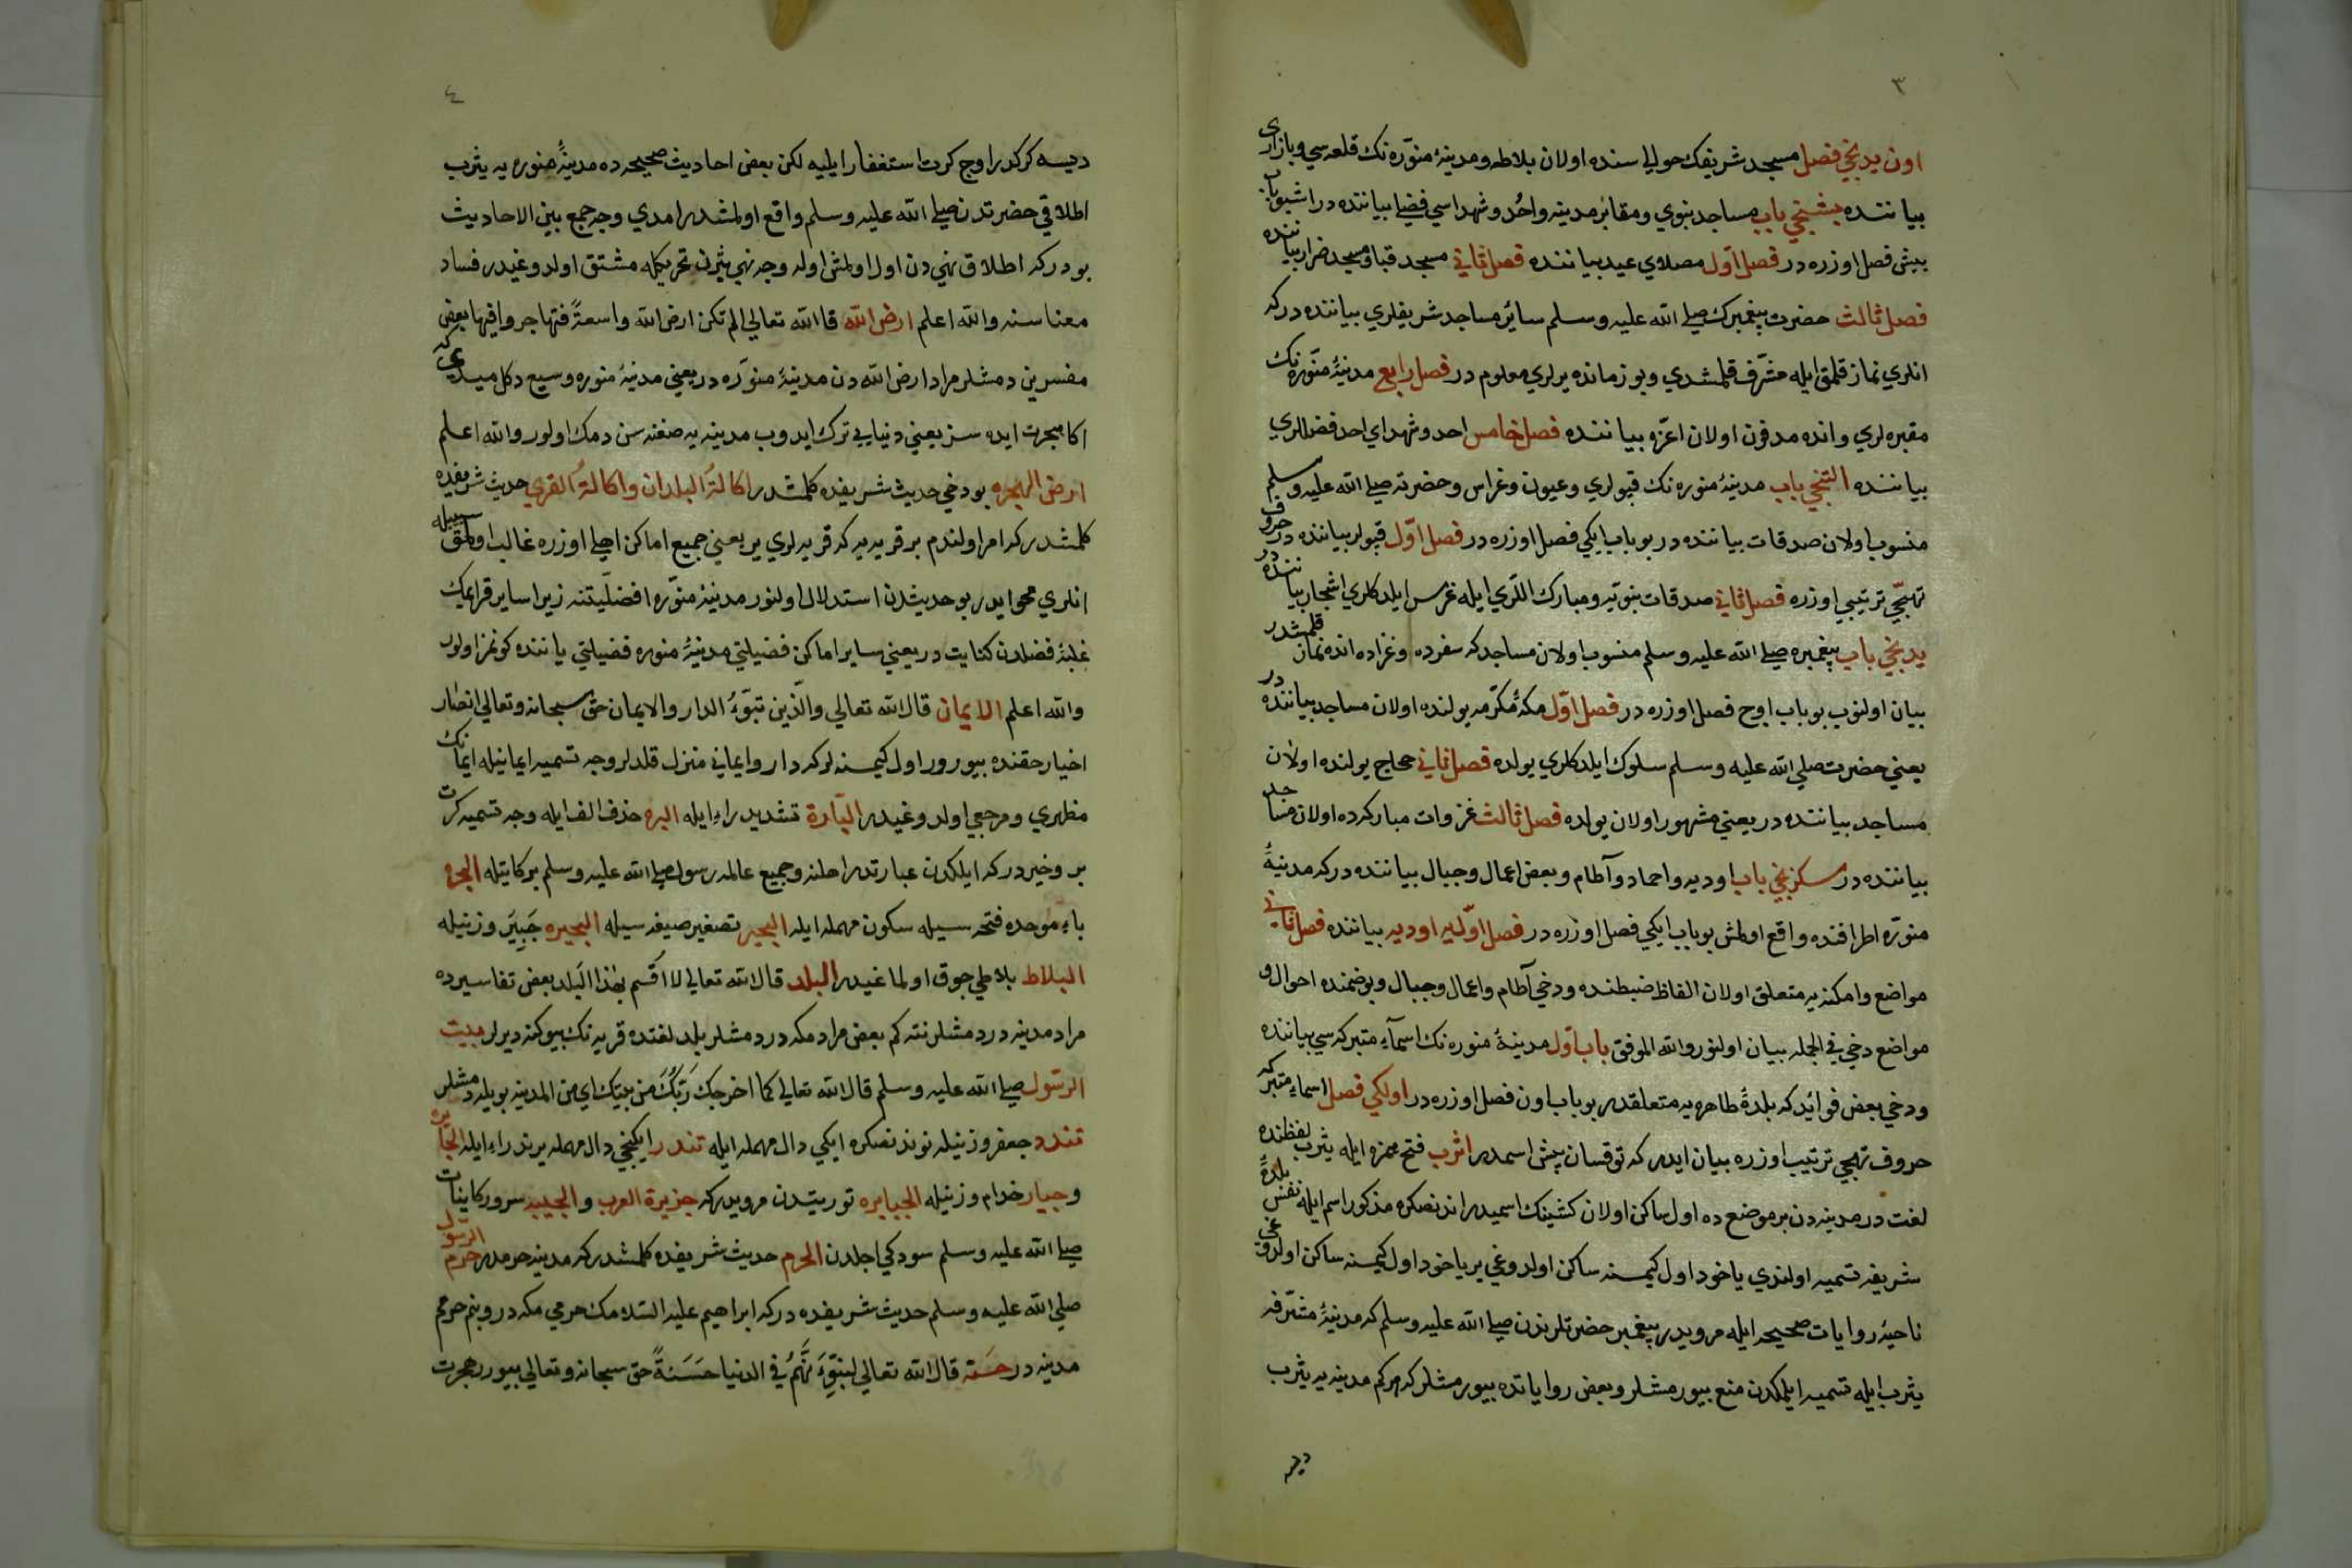 ٣
اون يدنجي فصل مسجد شريفك حواليسنده اولان بلاطه و مدينۀ منوّره نك قلعه سي و بازاري
بياننده بشنجي باب مساجد نبوي و مقابر مدينه و احُد و شهداسي فضلي بياننده در اشبو باب
بيش فصل اوزره در فصل اوّل مصلاي عيد بياننده فصل ثاني مسجد قبا و مسجد ضرار بياننده
فصل ثالث حضرت پيغمبرك صلي الله عليه وسلم سائر مساجد شريفلري بياننده در كه
انلري نماز قلمق ايله مشرّف قلمشدي و بو زمانده يرلري معلوم در فصل رابع مدينۀ منوّره نك
مقبره لري و انده مدفون اولان اعزّه بياننده فصل خامس احد و شهداي احد فضللري
بياننده التنجي باب مدينۀ منوره نك قيولري و عيون و غراس و حضرته صلي الله عليه وسلم
منسوب اولان صدقات بياننده در بو باب ايكي فصل اوزره در فصل اوّل قيولر بياننده در حروف
تهجّي ترتيبي اوزره فصل ثاني صدقات نبويّه و مبارك اللري ايله غرس ايلدكلري اشجار بياننده در
يدنجي باب پيغمبره صلي الله عليه وسلم منسوب اولان مساجد كه سفرده و غزاده انده نماز قلمشدر
بيان اولنوب بو باب اوح فصل اوزره در فصل اوّل مكۀ مكرّمه يولنده اولان مساجد بياننده در
يعني حضرت صلي الله عليه وسلم سلوك ايلدكلري يولده فصل ثاني حجاج يولنده اولان
مساجد بياننده در يعني مشهور اولان يولده فصل ثالث غزوات مباركه ده اولان مساجد
بياننده در سكزنجي باب اوديه و احماد و آطام و بعض اعمال و جبال بياننده در كه مدينۀ
منوّره اطرافنده واقع اولمش بو باب ايكي فصل اوزره در فصل اوّل اوديه بياننده فصل ثاني
مواضع و امكنه يه متعلق اولان الفاظ ضبطنده و دخي آطام و اعمال و جبال و بو ضمنده احوال و
مواضع دخي في الجمله بيان اولنور والله الموفق باب اوّل مدينۀ منوره نك اسمآء متبركه سي بياننده
و دخي بعض فوائد كه بلدۀ طاهره يه متعلقدر بو باب اون فصل اوزره در اولكي فصل اسماء متبركه
حروف تهجي ترتيب اوزره بيان ايدر كه توقسان بيش اسمدر اثرب فتح همزه ايله يثرب لفظنده
لغت در مدينه دن بر موضع ده اول ساكن اولان كشينك اسميدر اندنصكره مذكور اسم ايله نفس بلدۀ
شريفه تسميه اولندي ياخود اول كيمسنه ساكن اولدوغي ير ياخود اول كيمسنه ساكن اولدوغي
ناحيۀ روايات صحيحه ايله مرويدر پيغمبر حضرتلرندن صلي الله عليه وسلم كه مدينۀ مشرّفه
يثرب ايله تسميه ايلمكدن منع بيورمشلر و بعض رواياتده بيورمشلر كه هر كم مدينه يه يثرب
ديسه
٤
ديسه كركدر اوج كرت استغفار ايليه لكن بعض احاديث صحيحه ده مدينۀ منوره يه يثرب
اطلاقي حضرتدن صلي الله عليه وسلم واقع اولمشدر امدي وجه جمع بين الاحاديث
بودر كه اطلاق نهي دن اول اولمش اوله وجه نهي يثرن تحريكله مشتق اولدوغيدر فساد
معناسنه والله اعلم ارض الله قا الله تعالي الم تكن ارض الله واسعة فتهاجروا فيها بعض
مفسرين دمشلر مراد ارض الله دن مدينۀ منوّره در يعني مدينۀ منوره وسيع دكل ميدي كه
اكا هجرت ايده سز يعني دنيايي ترك ايدوب مدينه يه صغنه سن دمك اولور والله اعلم
ارض الهجره بو دخي حديث شريفده كلمشدر اكالة البلدان و اكالة القري حديث شريفده
كلمشدر كه امر اولندم بر قريه يه كه قريه لري ير يعني جميع اماكن اهلي اوزره غالب اولمق سببيله
انلري محو ايدر بو حديثدن استدلال اولنور مدينۀ منوّره افضليّتنه زيرا ساير قرانك
غلبۀ فضلدن كنايت در يعني ساير اماكن فضيلتي مدينۀ منوره فضيلتي ياننده كونمز اولور
والله اعلم الايمان قال الله تعالي والّذين تبوّءُ الدار والايمان حق سبحانه وتعالي انصار
اخيار حقنده بيورور اول كيمسنه لر كه دار و ايماني منزل قلدلر وجه تسميه ايمانيله ايمانك
مظهري و مرجعي اولدوغيدر البّارة تشديد راء ايله البره حذف الف ايله وجه تسميه كثرت
بر و خيردر كه ايلكدن عبارتدر اهلنه و جميع عالمه رسول صلي الله عليه وسلم بركاتيله البحره
باء موحده فتحه سيله سكون مهمله ايله البحير تصغير صيغه سيله البحيره جَبِيَر وزنيله
البلاط بلاطي جوق اولماغيدر البلد قال الله تعالي لا اقسم بهذا البلد بعض تفاسيرده
مراد مدينه در دمشلر نته كم بعض مراد مكه در دمشلر بلد لغتده قريه نك بيوكنه ديرلر بيت
الرسول صلي الله عليه وسلم قال الله تعالي كما اخرجك ربّك من بيتك اي من المدينه بويله دمشلر
تندد جعفر وزنيله نوندنصكره ايكي دال مهمله ايله تندر ايكنجي دال مهمله يرنده راء ايله الجابره
و جبار خدام وزنيله الجبابره توريتدن مرويدر كه جزيرة العرب و الحبيبه سرور كاينات
صلي الله عليه وسلم سودكي اجلدن الحرم حديث شريفده كلمشدر كه مدينه حرمدر حرم الرسول
صلي الله عليه وسلم حديث شريفده در كه ابراهيم عليه السّلامك حرمي مكه در و بنم حرمم
مدينه در حسنه قال الله تعالي لنبوّئنّهم في الدنيا حَسَنةً حق سبحانه وتعالي بيورر هجرت